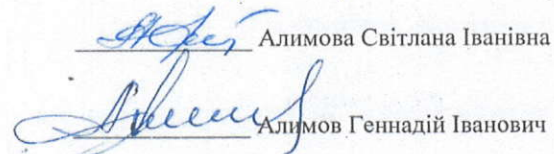 Алимова Світлана Іванівна
Алимов Геннадій Іванович